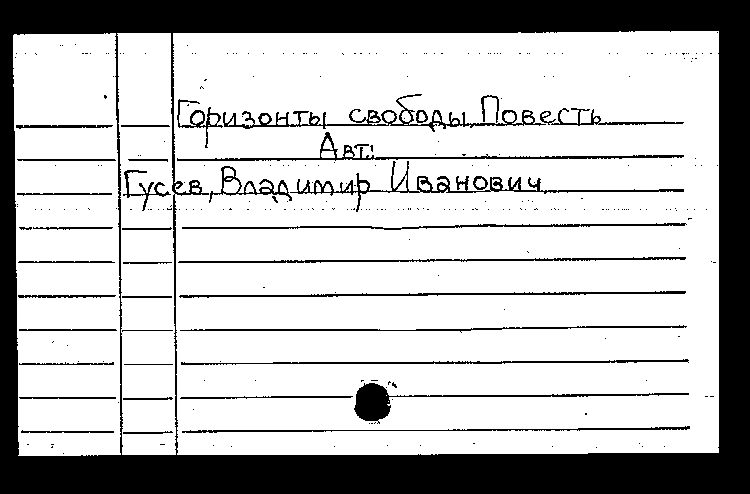 Горизонты свободы. Повесть
Авт.:
Гусев, Владимир Иванович